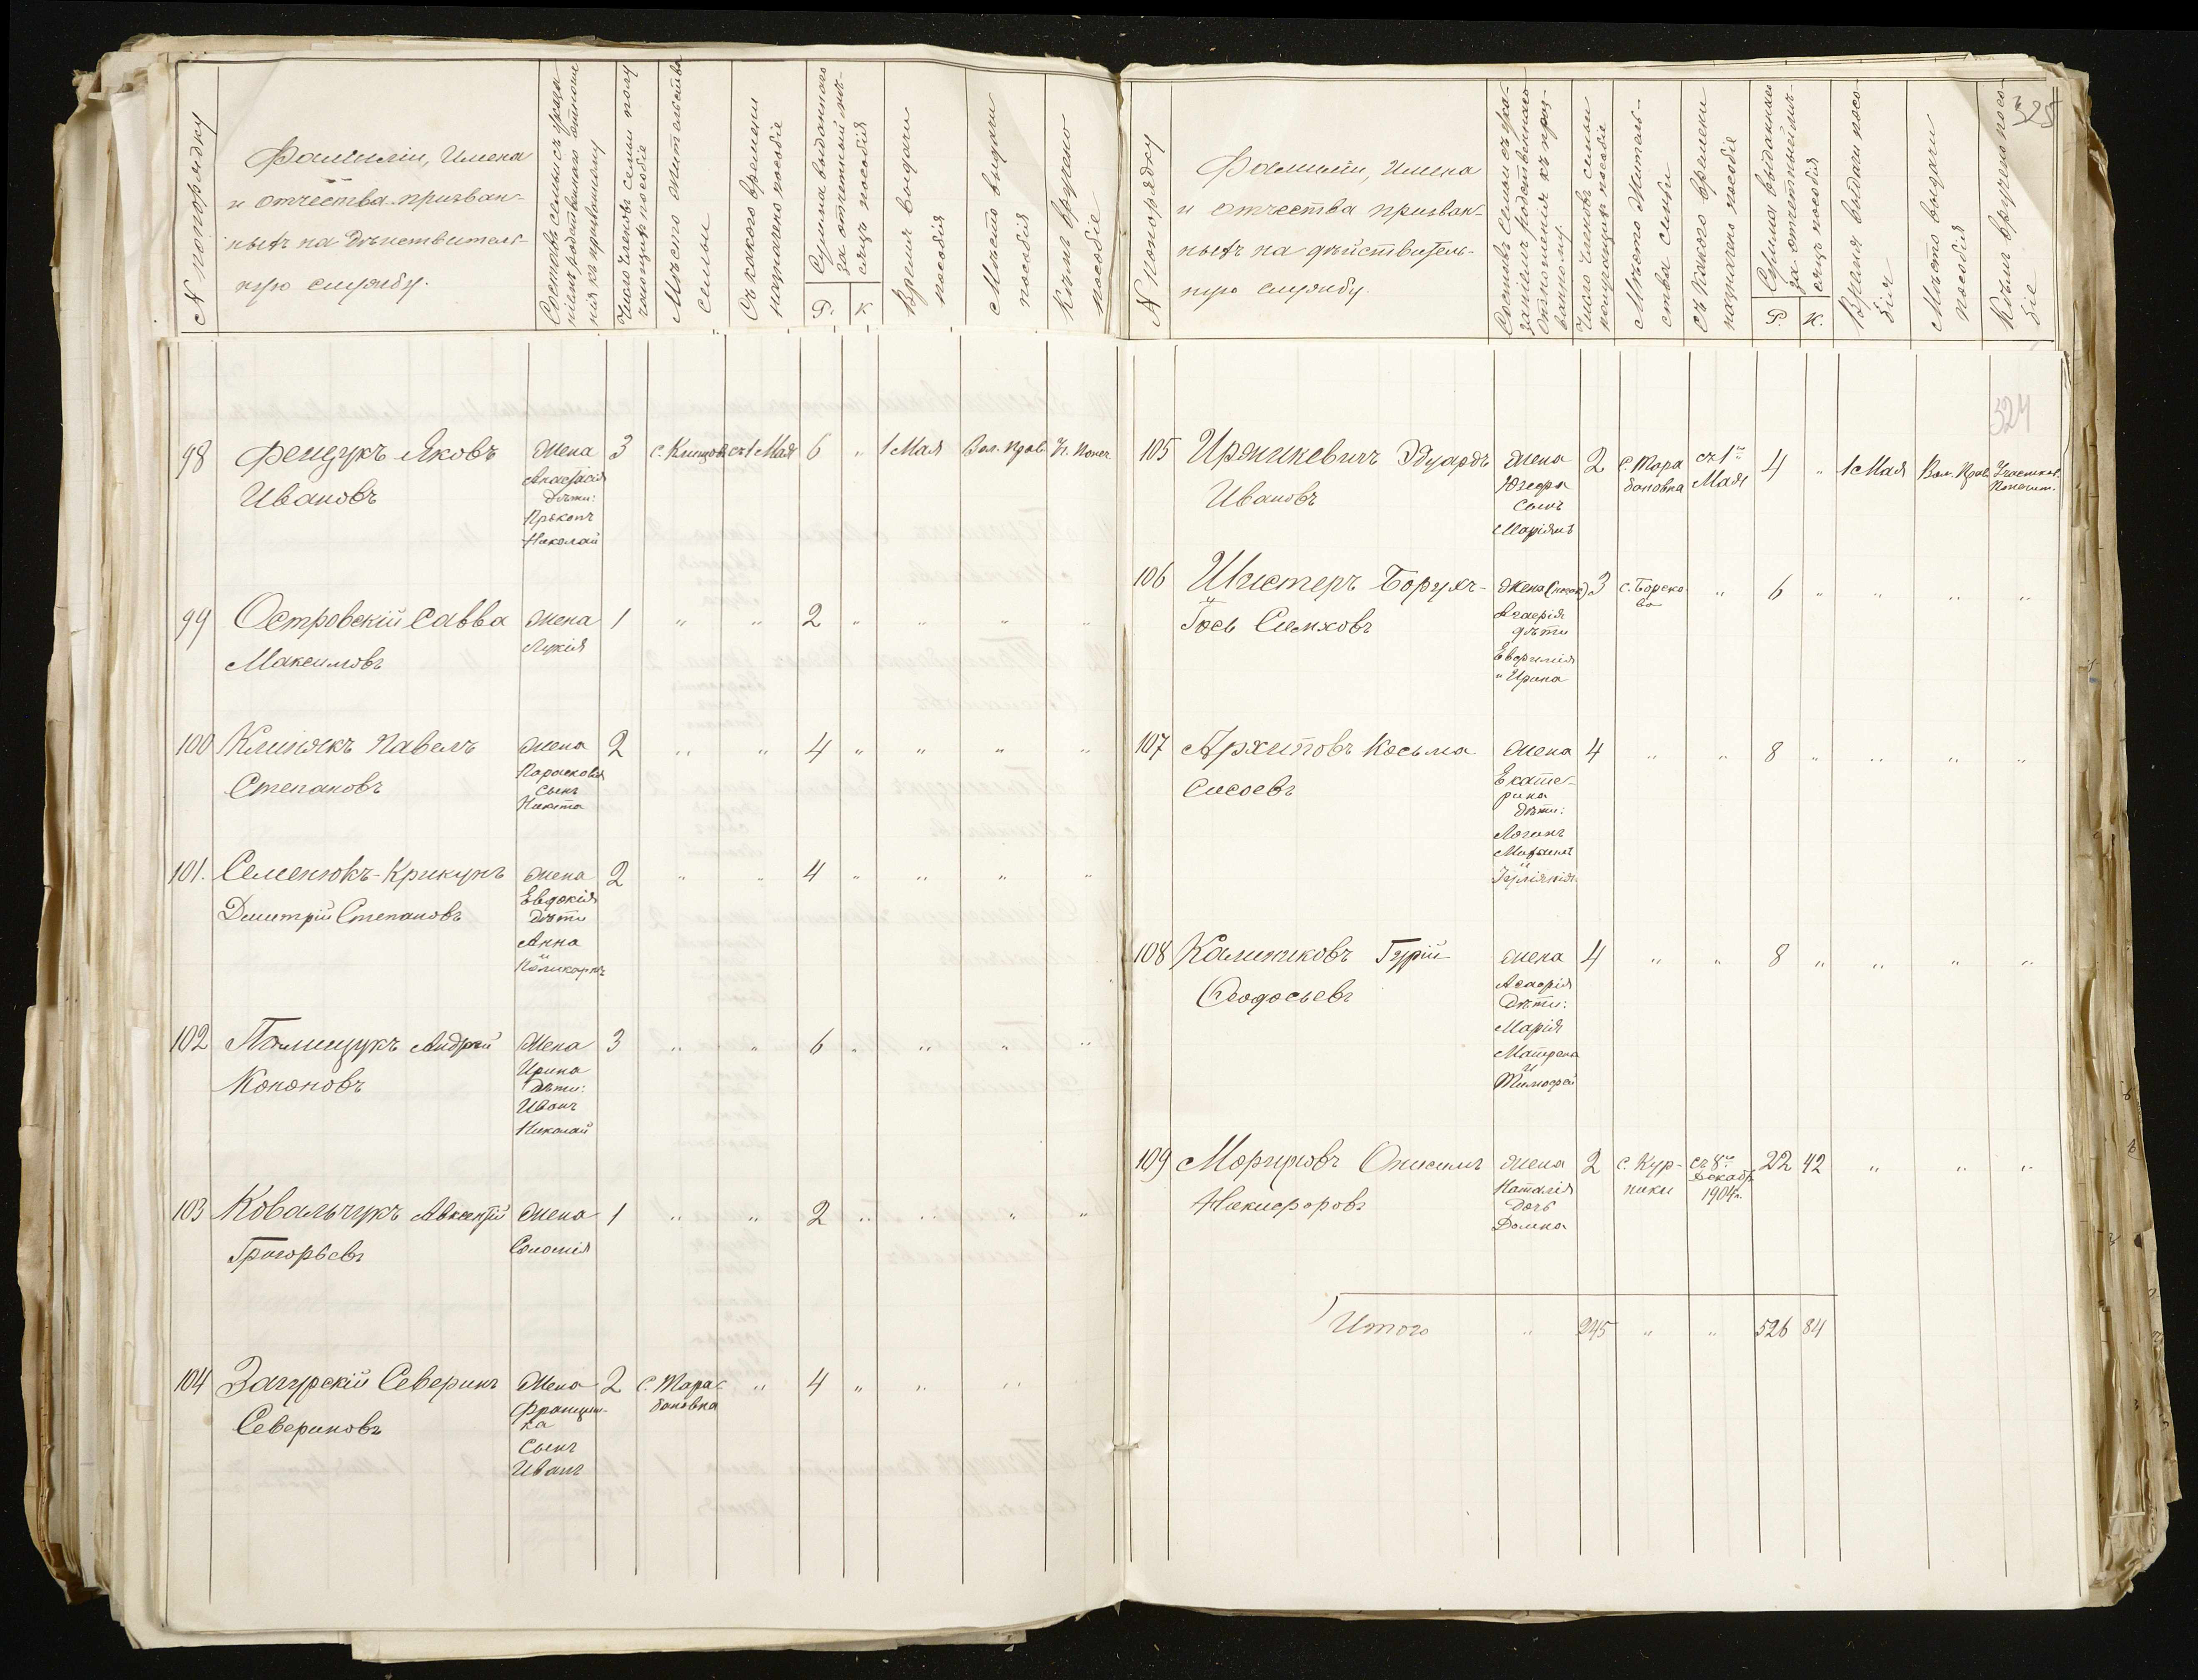 № по порядку
Фамиліи, Имена
и отчества призван-
ныхъ на действитель-
ную службу.
Составъ семьи съ указа-
ніемъ родственнаго отноше
нія къ призванному
Число членовъ семьи полу
чающихъ пособіе
Мѣсто жительства
семьи
Съ какого времени
назначено пособіе
Сумма выданнаго
за отчетный мѣ-
сяцъ пособія
Р.
К.
Время выдачи
пособія
Мѣсто выдачи
пособія
Кѣмъ вручено
пособіе
98
Фещукъ Яковъ
Ивановъ
Жена
Анастасія
дѣти:
Прокопъ
Николай
3
съ 1 Мая
6
"
1 Мая
Вол. Прав.
99
Островскій Савва
Максимовъ
Жена
Лукія
1
"
"
2
"
"
"
"
100
Климякъ Павелъ
Степановъ
Жена
Парасковія
Сынъ
Никита
2
"
"
4
"
"
"
"
101.
Семенюкъ-Крикунъ
Дмитрій Степановъ
Жена
Евдокія
дѣти
Анна
и
Поликарпъ
2
"
"
4
"
"
"
"
102
Полищукъ Андрей
Кононовъ
Жена
Ирина
дѣти:
Иванъ
Николай
3
"
"
6
"
"
"
"
103
Ковальчукъ Авксентій
Григорьевъ
Жена
Соломія
1
"
"
2
"
"
"
"
104
Загурскій Северинъ
Севериновъ
Жена
Францишка
Сынъ
Иванъ
2
С. Тара-
бановка
"
4
"
"
"
325
№ по порядку
Фамиліи, Имена
и отчества призван-
ныхъ на дѣйствитель-
ную службу.
Составъ семьи съ ука-
заніемъ родственнаго
отношенія къ приз-
ванному
Число членовъ семьи
получающихъ пособіе
Мѣсто житель-
ства семьи
Съ какого времени
назначено пособіе
Сумма выданнаго
за отчетный мѣ-
сяцъ пособія
Р.
К.
Время выдачи посо-
бія
Мѣсто выдачи
пособія
Кѣмъ вручено посо-
біе
324
105
Эдуардъ
Ивановъ
Жена
Юзефа
Сынъ
Маріянъ
2
С. Тара
бановка
съ 1го
Мая
4
"
1 Мая
Вол. Прав.
Участков.
Попечит.
106
Шистеръ Борухъ-
Іось Симховъ
Жена
Агафія
дѣти
Евфимія
и Ирина
3
с. Борско
во
"
6
"
"
"
"
107
Архиповъ Косьма
Сисоевъ
Жена
Екате-
рина
дѣти:
Логинъ
и
4
"
"
8
"
"
"
"
108
Калинниковъ Гурій
Феодосьевъ
Жена
Агафія
Дѣти:
Марія
Матрена
и
Тимофей
4
"
"
8
"
"
"
"
109
Моргуновъ Онисимъ
Никифоровъ
Жена
Наталія
дочь
Домна
2
С. Кур-
пики
съ 8го
Декабр.
1904 г.
22
42
"
"
"
Итого
"
245
"
"
526
84